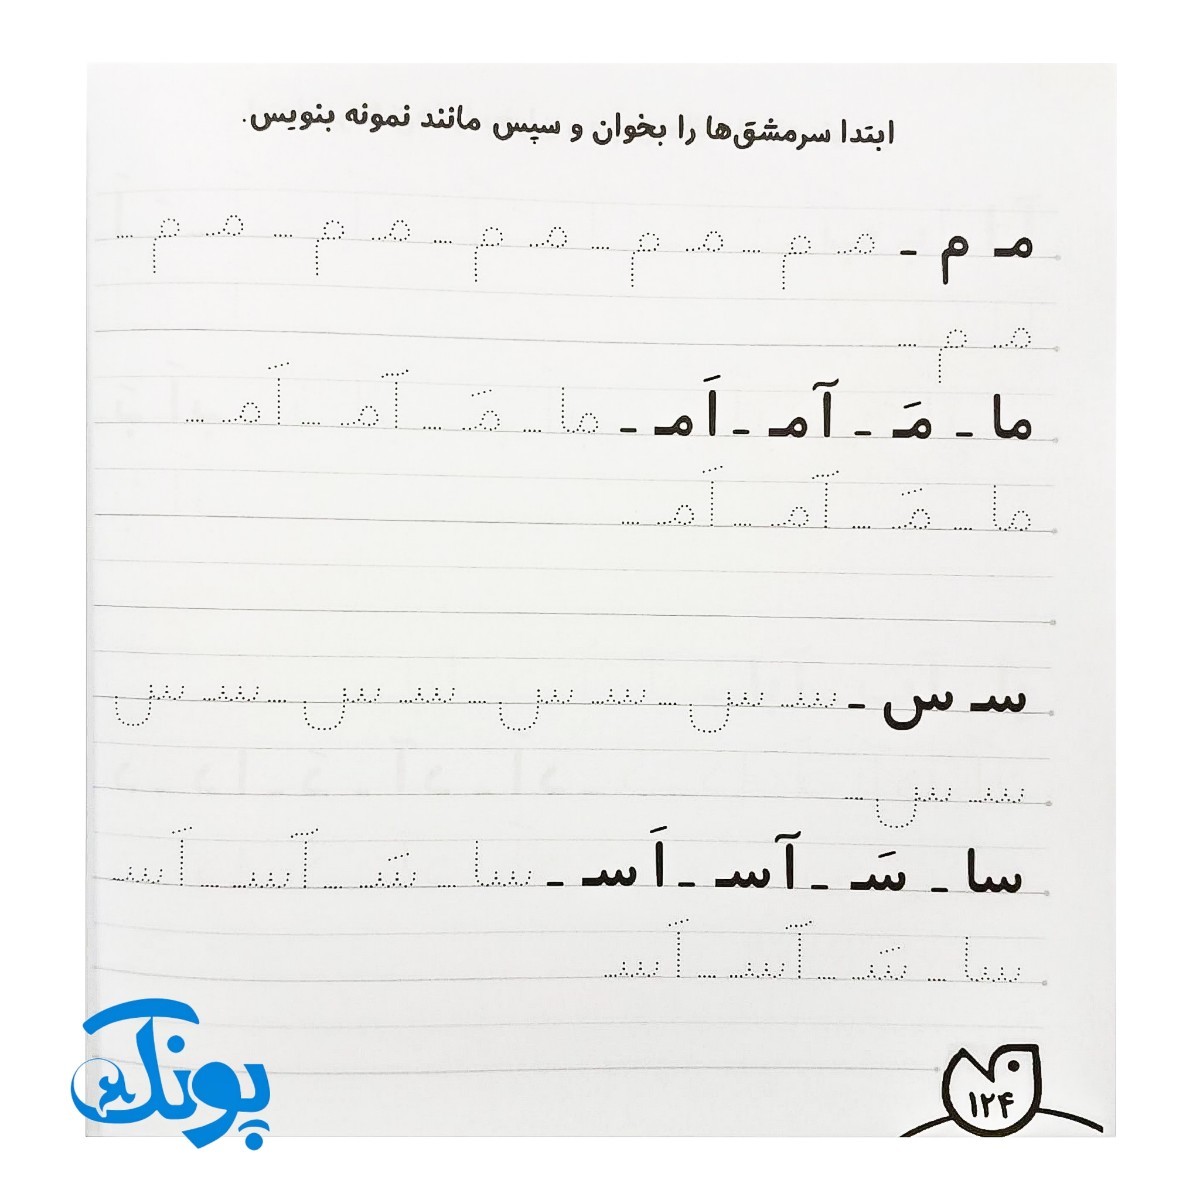 ابتدا سرمشق‌ها را بخوان و سپس مانند نمونه بنویس.
مـ م ـ مـ م ـ مـ م ـ مـ م ـ مـ م ـ مـ م ـ
مـ م ـ
ما ـ مَـ ـ آمـ ـ اَمـ ـ ما ـ مَـ ـ آمـ ـ اَمـ ـ
ما ـ مَـ ـ آمـ ـ اَمـ ـ
سـ س ـ سـ س ـ سـ س ـ سـ س ـ سـ س
سـ س ـ
سا ـ سَـ ـ آسـ ـ اَسـ ـ سا ـ سَـ ـ آسـ ـ اَسـ
سا ـ سَـ ـ آسـ ـ اَسـ
۱۲۴
پونک